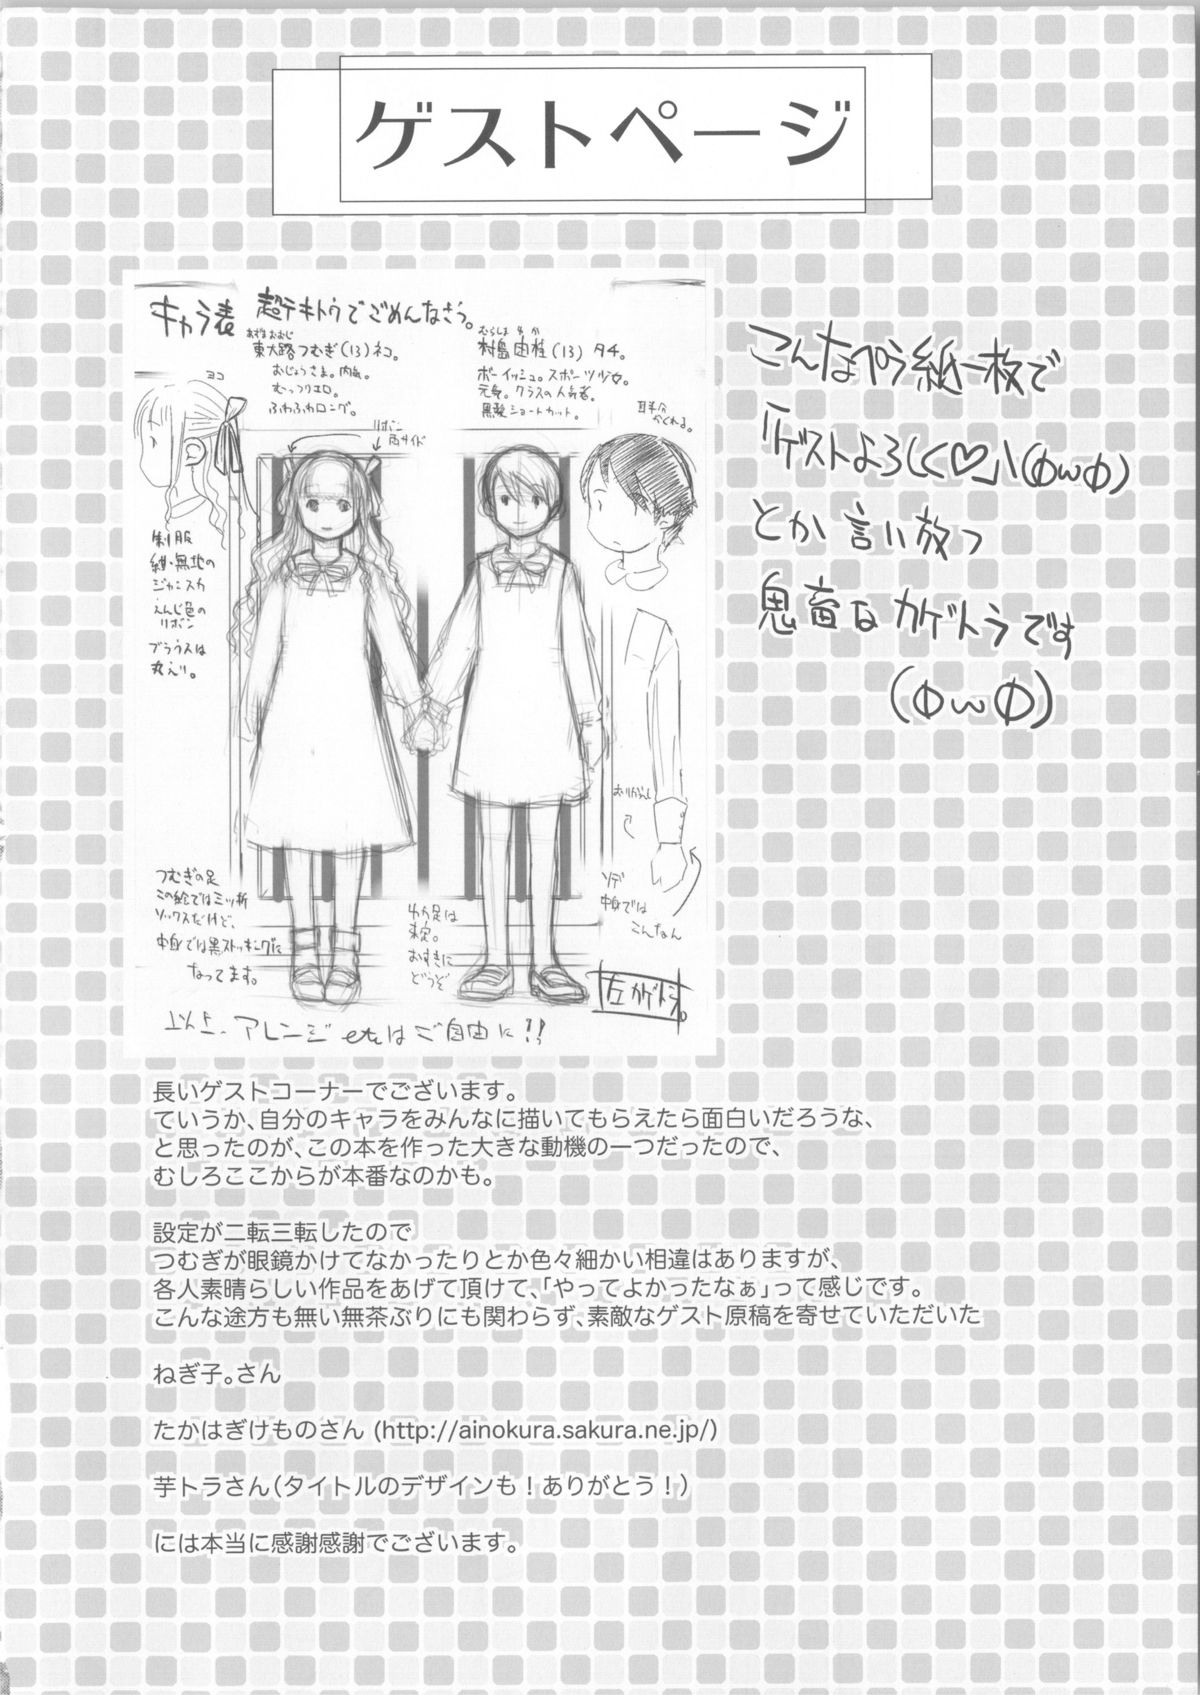 ゲストページ
キャラ表 超テキトウでごめんなさい。
ヨコ
リボン
両サイド
耳半分
かくれる。
制服
紺・無地の
ジャンスカ
えんじ色の
リボン
ブラウスは
丸えり。
こんなペラ紙一枚で
『ゲストよろしく♡』(ΦωΦ)
とか言い放つ
鬼畜なカゲトラです
(ΦωΦ)
つむぎの足
この絵では三ッ折
ソックスだけど、
中身では黒ストッキングに
なってます。
足は
未定。
おすきに
どうぞ
おりかえし
ソデ
中身では
こんなん
左カゲトラ。
以上、アレンジetcはご自由に!!
長いゲストコーナーでございます。
ていうか、自分のキャラをみんなに描いてもらえたら面白いだろうな、
と思ったのが、この本を作った大きな動機の一つだったので、
むしろここからが本番なのかも。
設定が二転三転したので
つむぎが眼鏡かけてなかったりとか色々細かい相違はありますが、
各人素晴らしい作品をあげて頂けて、「やってよかったなぁ」って感じです。
こんな途方も無い無茶ぶりにも関わらず、素敵なゲスト原稿を寄せていただいた
ねぎ子。さん
たかはぎけものさん (http://ainokura.sakura.ne.jp/)
芋トラさん(タイトルのデザインも！ありがとう！)
には本当に感謝感謝でございます。